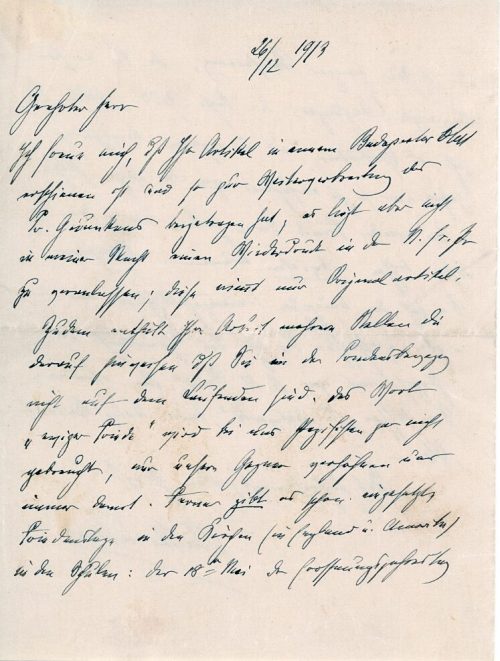 26/12 1913
Geehrter Herr
Ich freue mich, dß Ihr Artikel in einem Budapester Blatt
erschienen ist und so zur Weiterverbreitung des
Fr. Gedankens beigetragen hat, es liegt aber nicht
in meiner Macht einen Wiederdruck in der N. Fr. Pr
zu veranlassen; diese nimmt nur Originalartikel.
Zudem enthält Ihr Artikel mehrere Stellen die
darauf hinweisen dß Sie in der Friedensbewegung
nicht auf dem Laufenden sind. Das Wort
"ewiger Friede" wird bei uns Pazifisten gar nicht
gebraucht, nur unsere Gegner verhöhnen uns
immer damit. Ferner gibt es schon eingesetzte
Friedenstage in den Kirchen (in England u. Amerika)
in den Schulen: der 18te Mai der Eröffnungsjahrestag